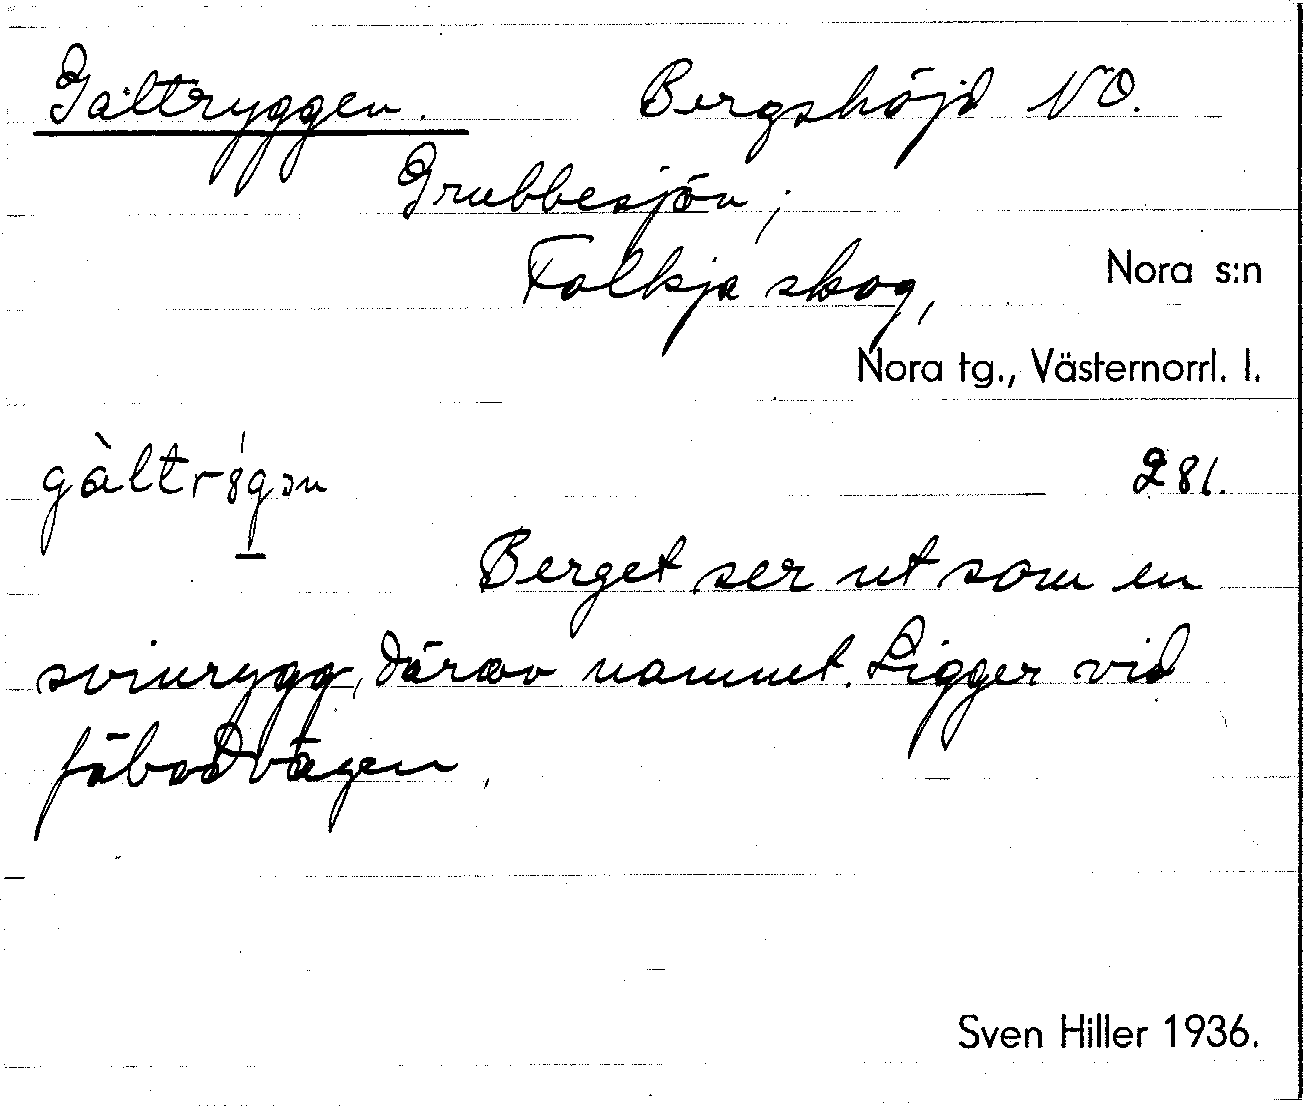 Galtryggen. Bergshöjd NO.
Grubbesjön;
Folkja skog, Nora s:n
Nora tg., Västernorrl. l.
281.
Berget ser ut som en
svinrygg, därav namnet. Ligger vid
fäbodvägen.
Sven Hiller 1936.